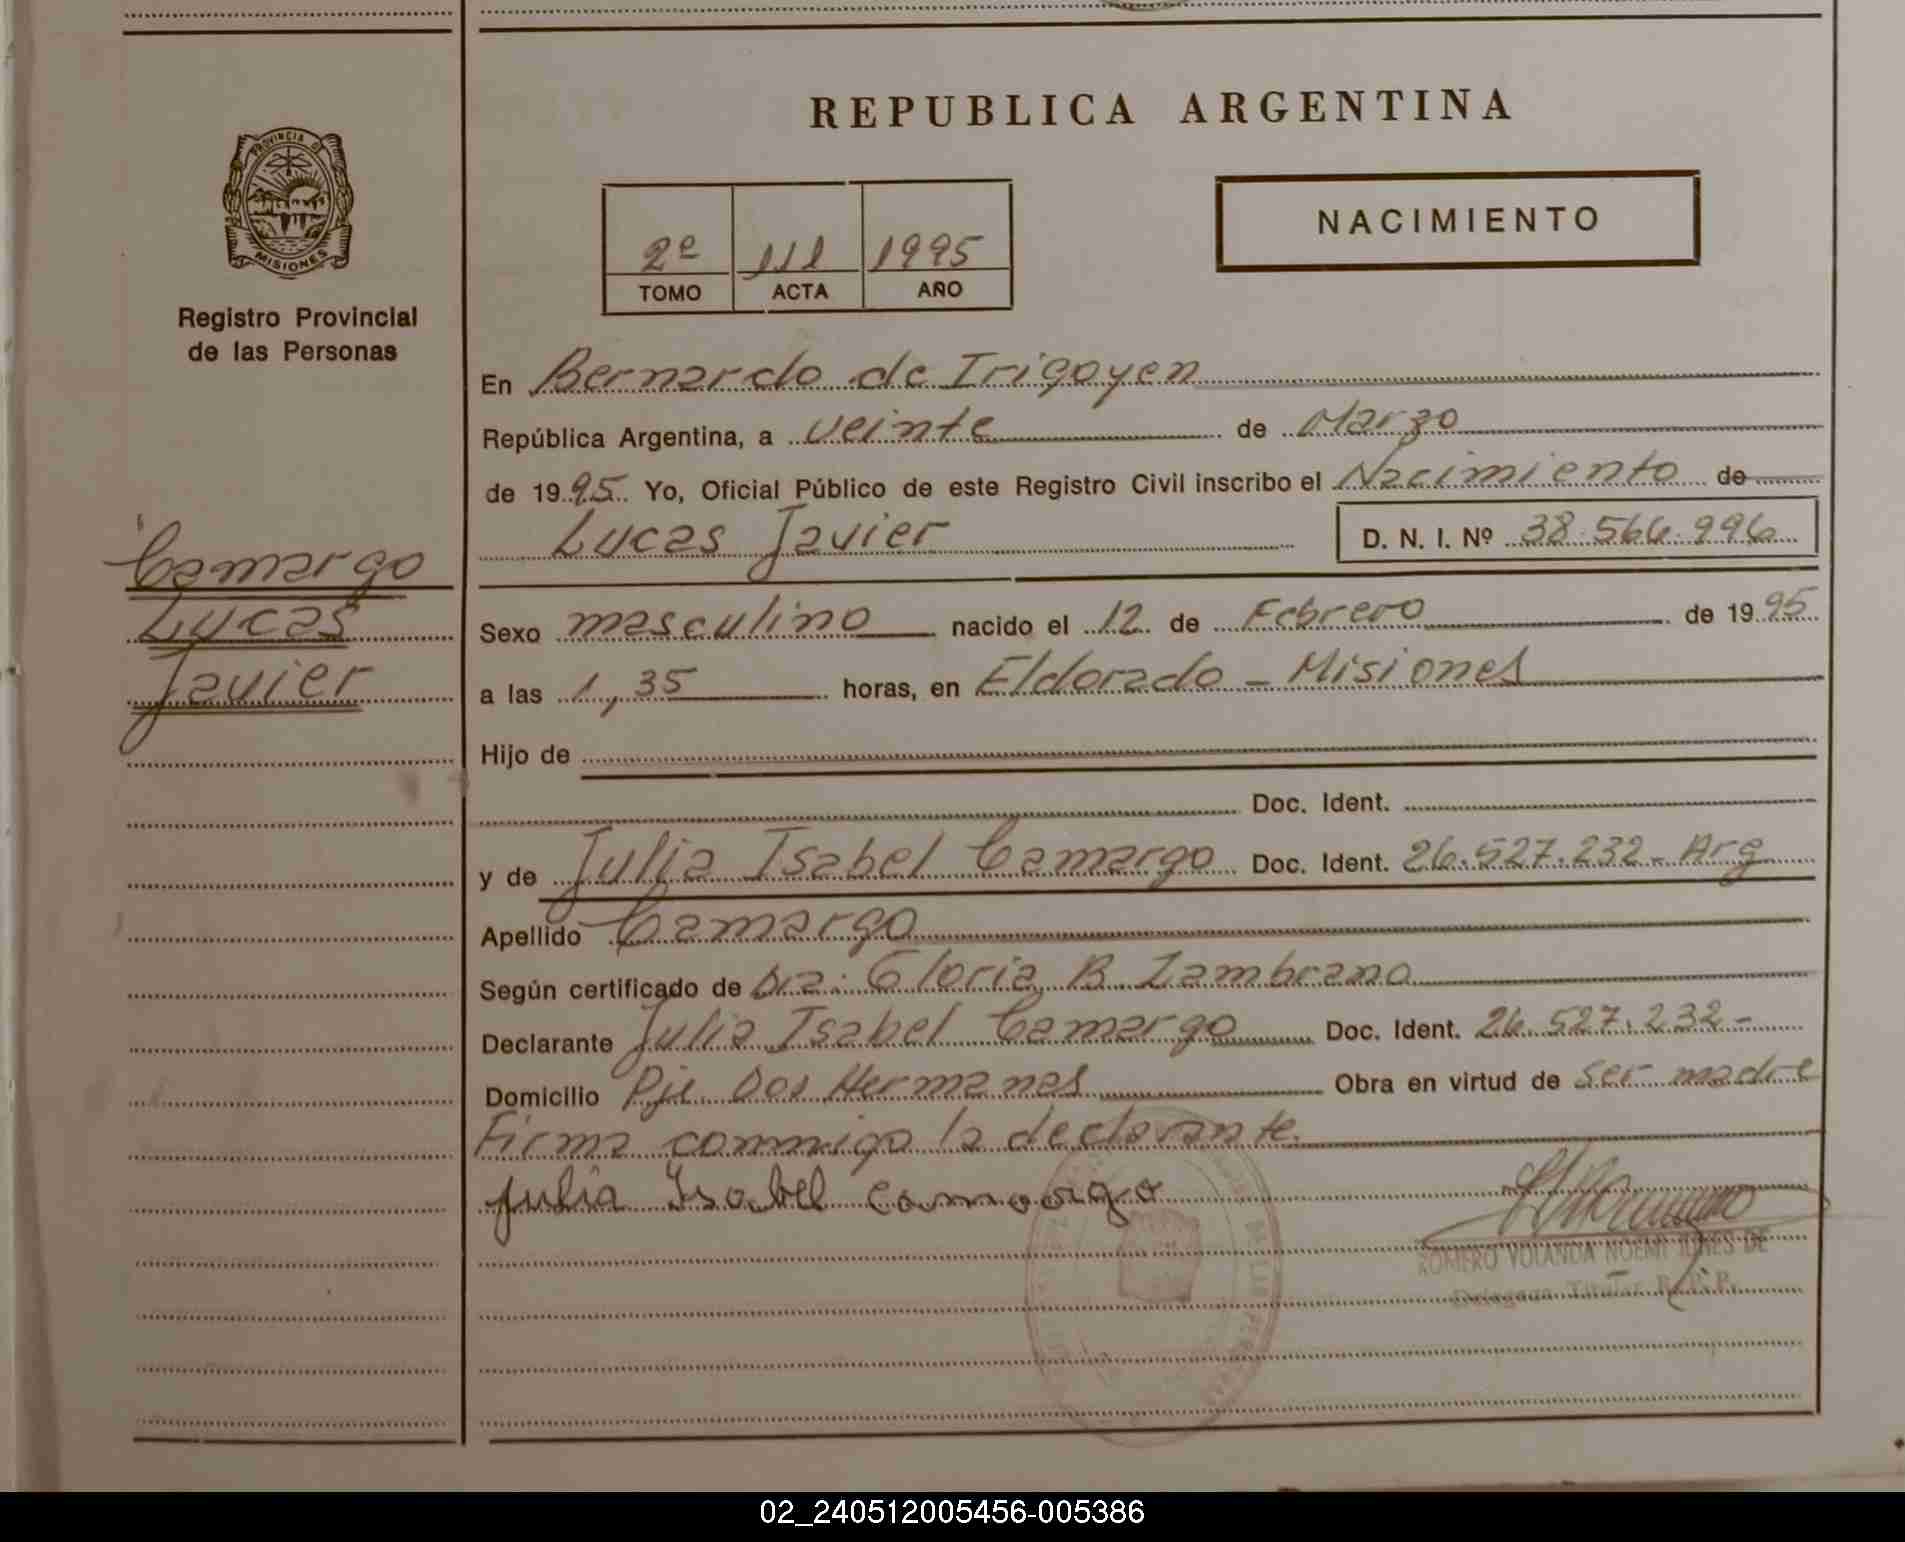 REPUBLICA ARGENTINA
NACIMIENTO
2º 111 1995
TOMO ACTA AÑO
PROVINCIA DE
MISIONES
Registro Provincial
de las Personas
Camargo
Lucas
Javier
En Bernardo de Irigoyen
República Argentina, a veinte de Marzo
de 1995 Yo, Oficial Público de este Registro Civil inscribo el Nacimiento de
Lucas Javier D. N. I. Nº 38.566.996
Sexo masculino nacido el 12 de Febrero de 1995
a las 1,35 horas, en Eldorado - Misiones
Hijo de
Doc. Ident.
y de Julia Isabel Camargo Doc. Ident. 26.527.232 - Arg
Apellido Camargo
Según certificado de Dra. Gloria B. Zambrano
Declarante Julia Isabel Camargo Doc. Ident. 26.527.232 -
Domicilio Pje. Dos Hermanas Obra en virtud de ser madre
Firma conmigo la declarante.
Julia Isabel Camargo
ROMERO YOLANDA NOEMI DE
Titular
02_240512005456-005386